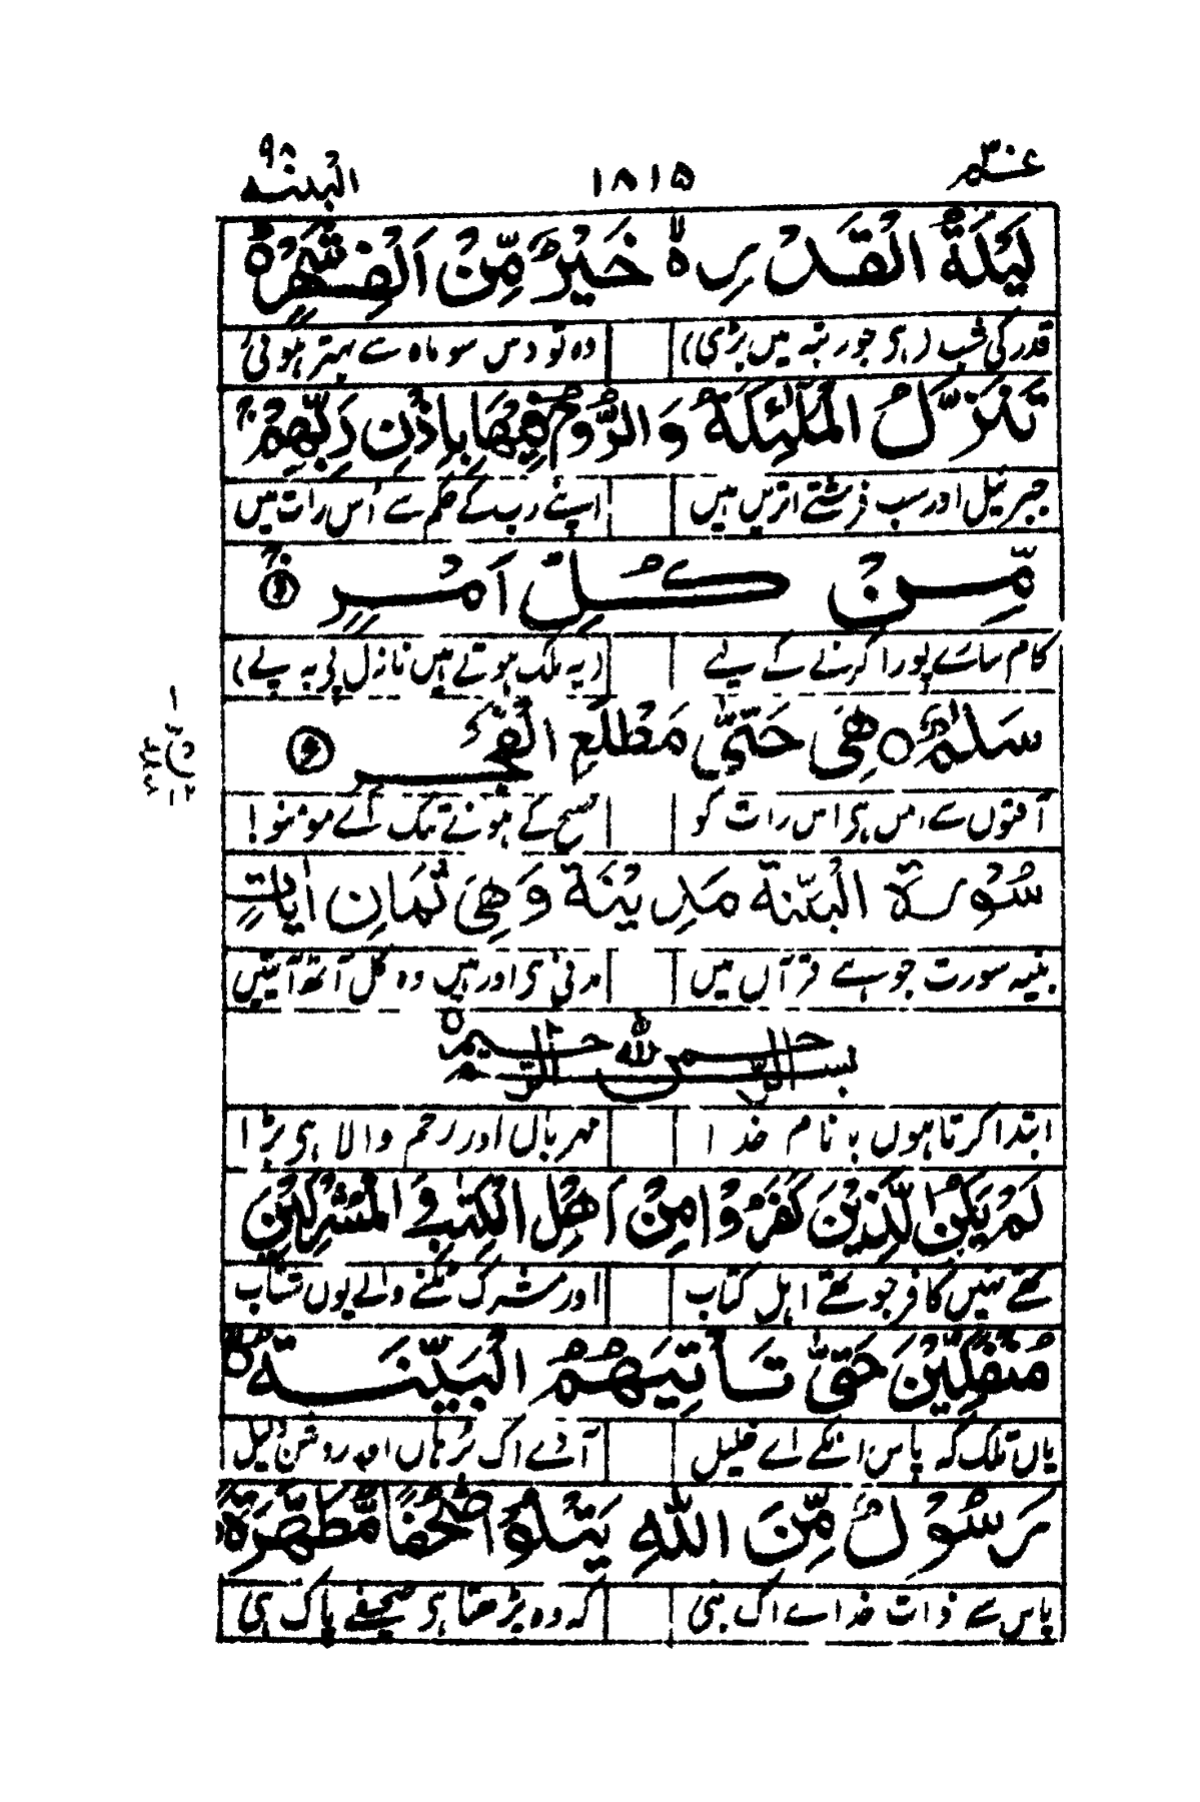 عم ٣٠ ١٨١٥ البينه ٩٨
لَيْلَةُ الْقَدْرِ ە خَيْرٌ مِّنْ اَلْفِ شَهْرٍ ە
قدر کی شب (ہی جو رتبہ میں بڑی) وہ تو دس سو ماہ سے بہتر ہوئی
تَنَزَّلُ الْمَلٰٓئِكَةُ وَالرُّوْحُ فِيْهَا بِاِذْنِ رَبِّهِمْ ۚ
جبرئیل اور سب فرشتے اتریں ہیں اپنے رب کے حکم سے اُس رات میں
مِّنْ كُلِّ اَمْرٍ
کام سارے پورا کرنے کے لیے (یہ ملک ہوتے ہیں نازل پی بہ پے)
سَلٰمٌ ە هِيَ حَتّٰى مَطْلَعِ الْفَجْرِ
آفتوں سے امن ہی اس رات کو صبح کے ہونے تلک اے مومنو!
سُوْرَةُ الْبَيِّنَةِ مَدِيْنَةٌ وَهِيَ ثَمَانِ اٰيَاتٍ
بینہ سورت جو ہے قرآں میں مدنی ہی اور ہیں وہ کل آٹھ آیتیں
بسم الله الرحمن الرحيم
ابتدا کرتا ہوں با نام خدا مہرباں اور رحم والا ہی بڑا
لَمْ يَكُنِ الَّذِيْنَ كَفَرُوْا مِنْ اَهْلِ الْكِتٰبِ وَالْمُشْرِكِيْنَ
تھے نہیں کافر جو تھے اہل کتاب اور مشرک ٹلنے والے یوں شتاب
مُنْفَكِّيْنَ حَتّٰى تَاْتِيَهُمُ الْبَيِّنَةُ ە
یاں تلک کہ پاس انکے اے خلیل آئے اک برہاں اور روشن دلیل
رَسُوْلٌ مِّنَ اللّٰهِ يَتْلُوْا صُحُفًا مُّطَهَّرَةً
پاس سے ذات خدا سے اک نبی کہ وہ پڑھتا ہی صحیفے پاک ہی